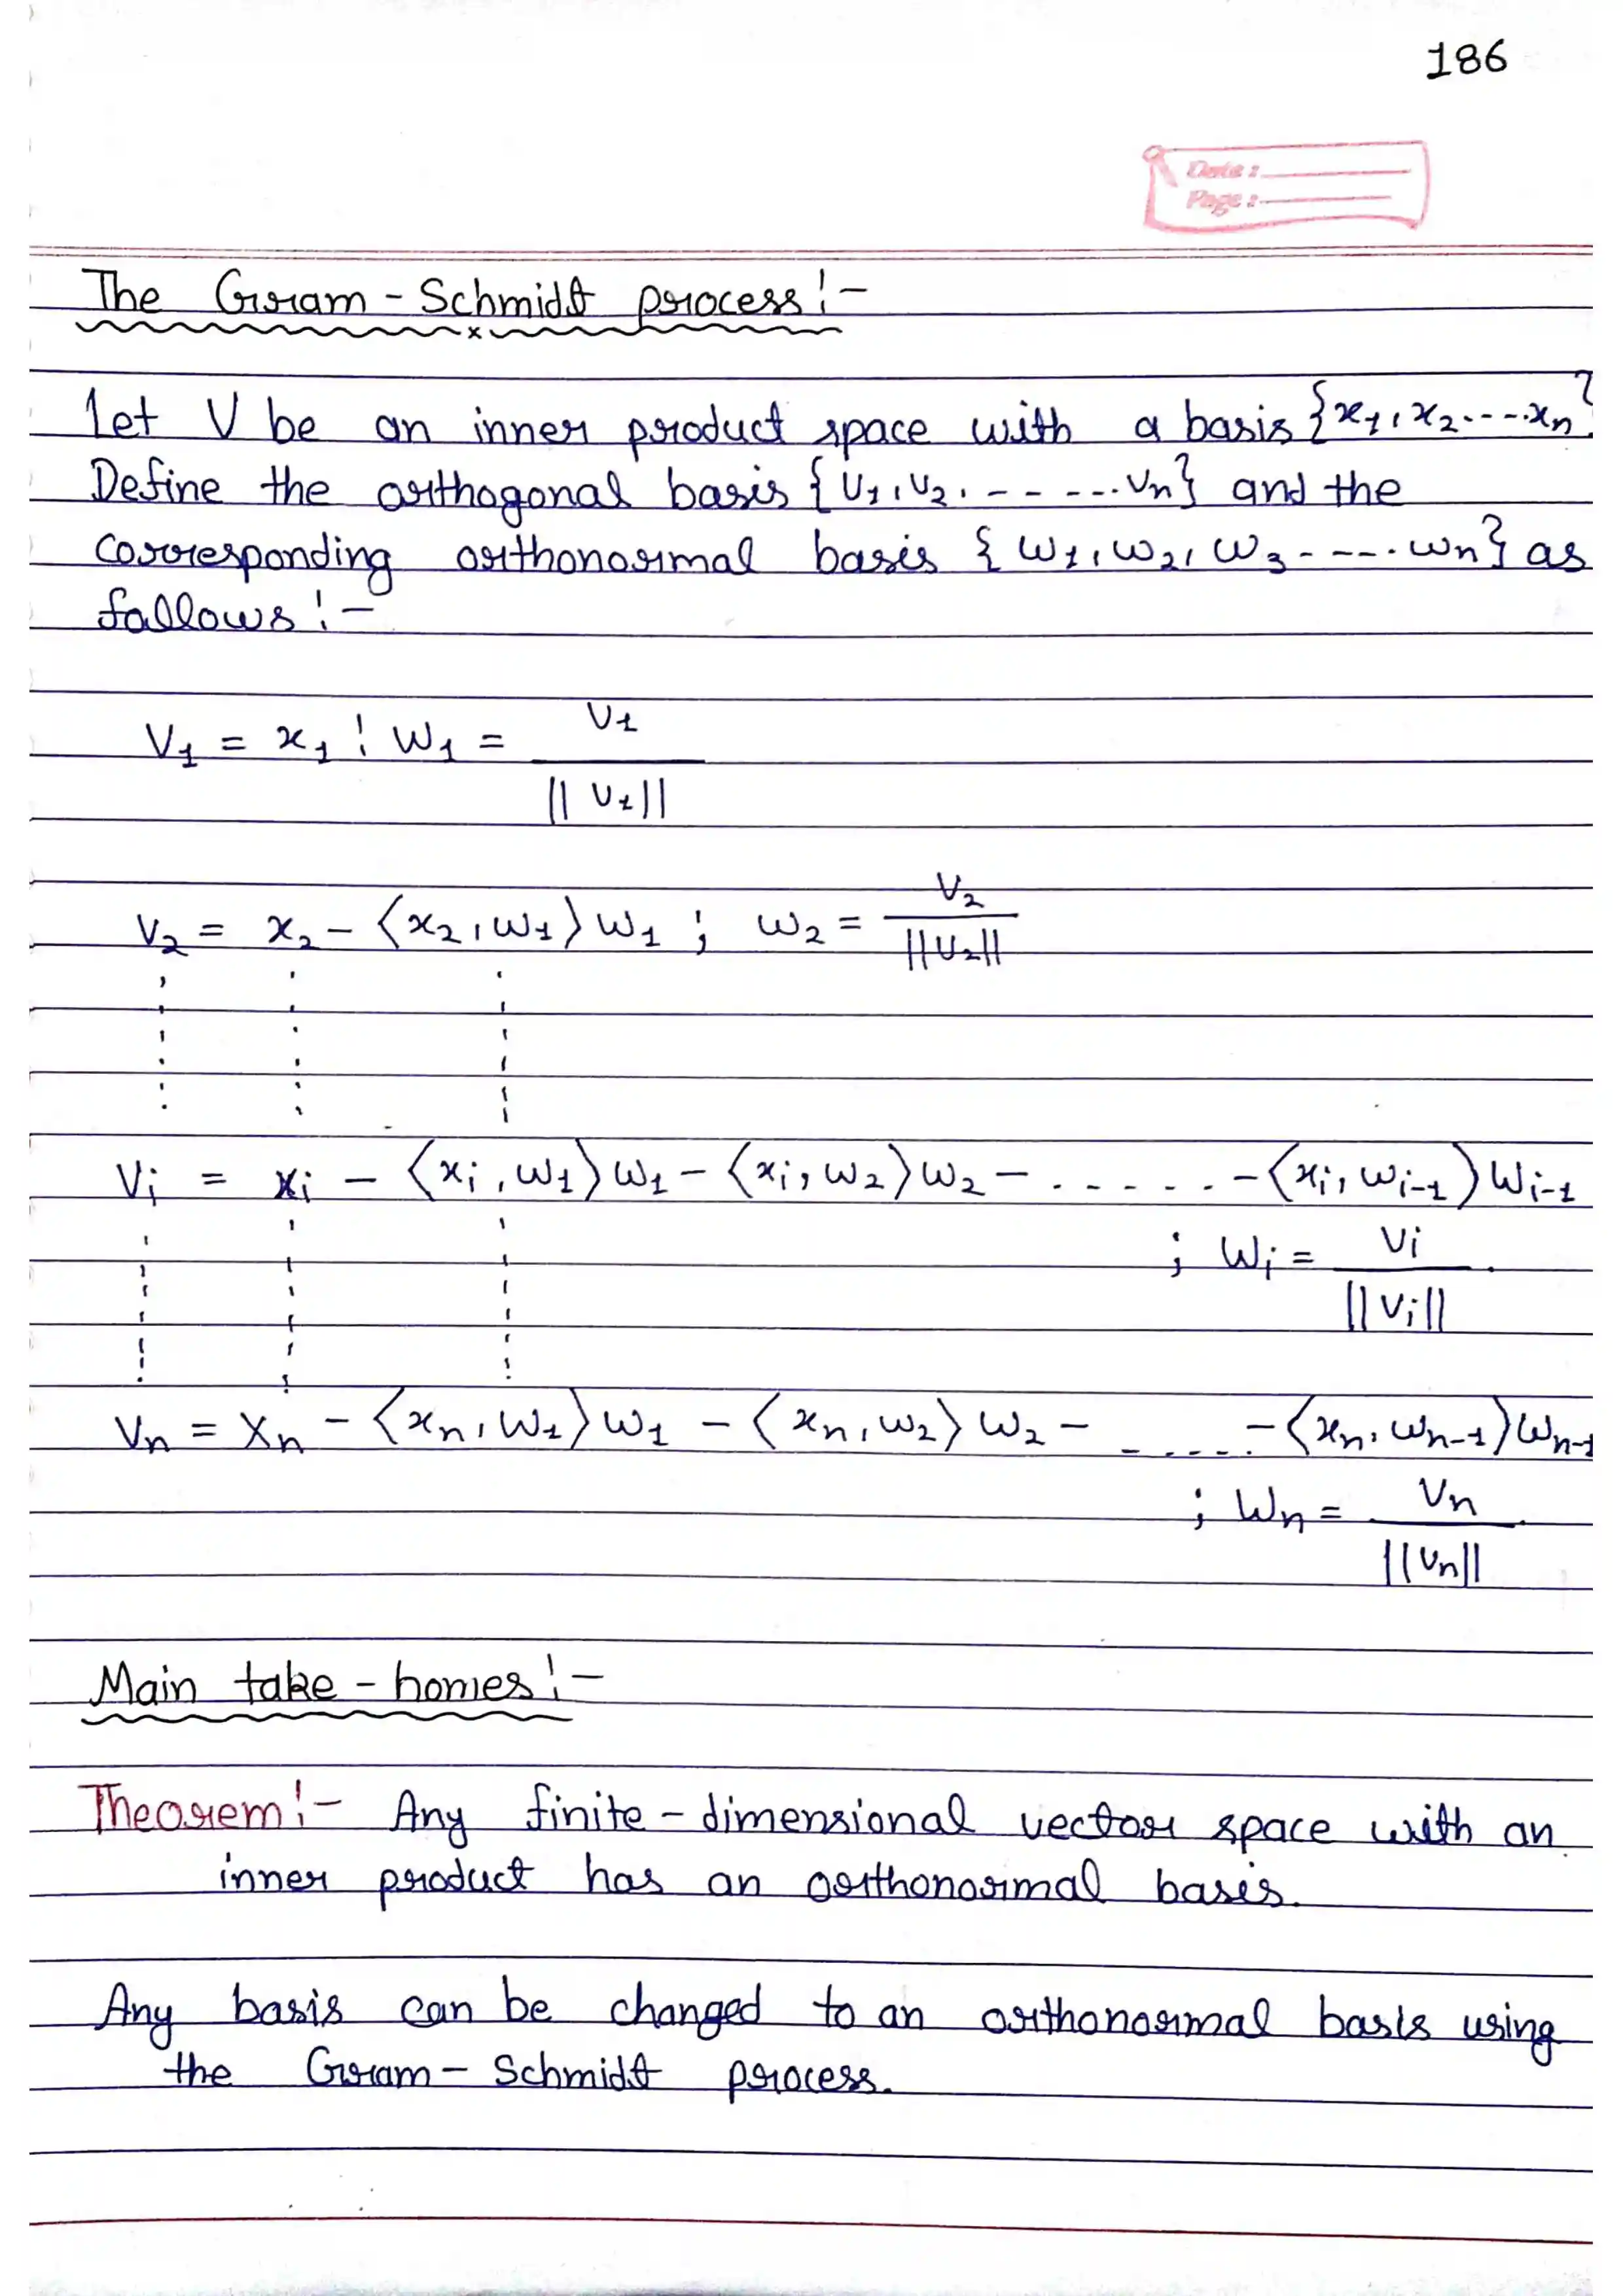 186
Date :
Page :
The Gram - Schmidt process :-
Let V be an inner product space with a basis {x₁, x₂ - - - . xₙ}.
Define the orthogonal basis { v₁, v₂, - - - - - . vₙ} and the
corresponding orthonormal basis { w₁, w₂, w₃ - - - - . wₙ} as
follows :-
V₁ = x₁ ; w₁ = v₁ / || v₁ ||
V₂ = x₂ - ⟨x₂, w₁⟩ w₁ ; w₂ = V₂ / ||V₂||
Vᵢ = xᵢ - ⟨xᵢ, w₁⟩ w₁ - ⟨xᵢ, w₂⟩ w₂ - . . . . . . - ⟨xᵢ, wᵢ₋₁⟩ wᵢ₋₁
; wᵢ = vᵢ / || vᵢ ||
Vₙ = xₙ - ⟨xₙ, w₁⟩ w₁ - ⟨xₙ, w₂⟩ w₂ - - - - - - . - ⟨xₙ, wₙ₋₁⟩ wₙ₋₁
; wₙ = vₙ / || vₙ ||
Main take - homes :-
Theorem :- Any finite - dimensional vector space with an
inner product has an orthonormal basis.
Any basis can be changed to an orthonormal basis using
the Gram - Schmidt process.